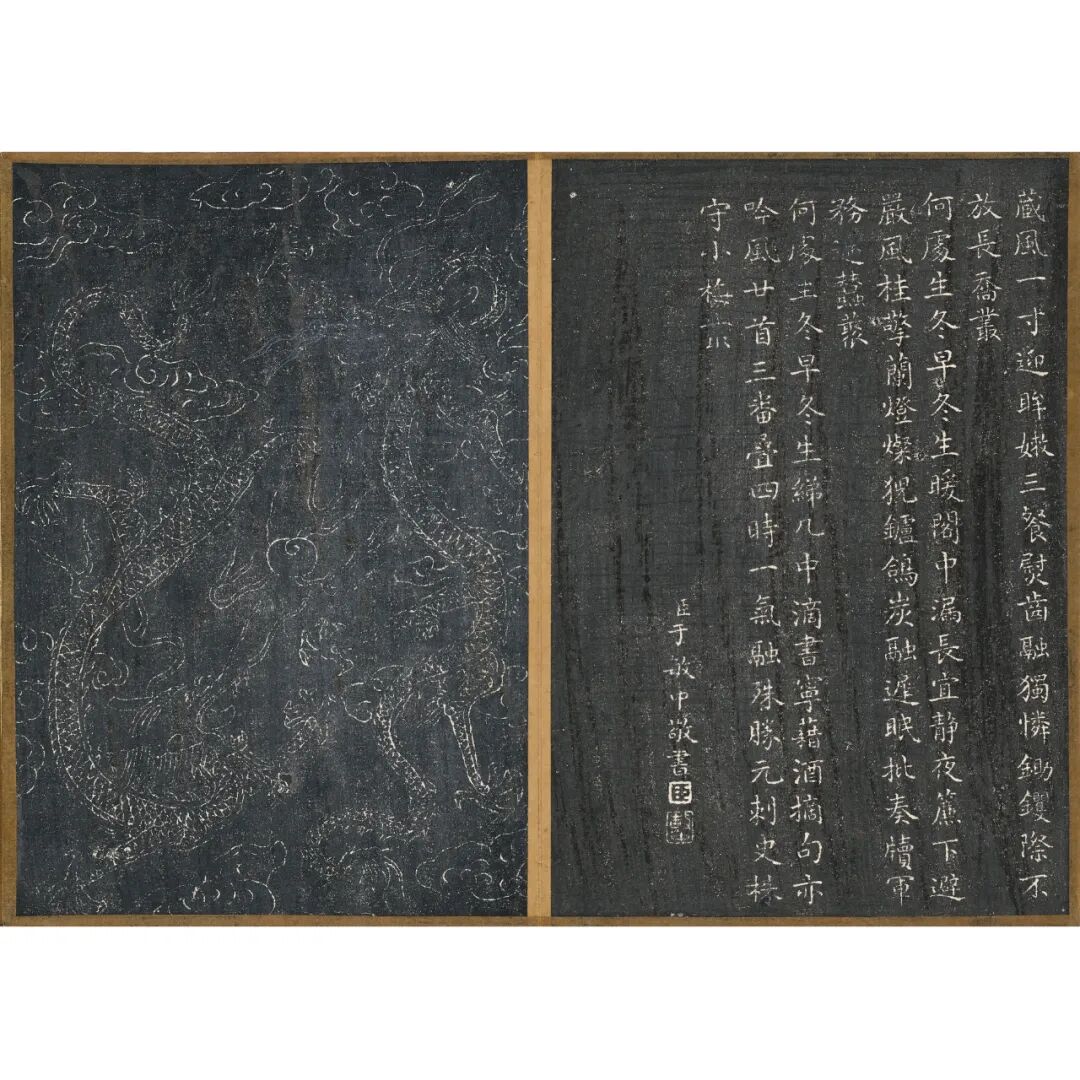 蔵風一寸迎眸嫩三餐熨齒融獨憐鋤钁際不
放長喬叢
何處生冬早冬生暖閣中漏長宜静夜簾下避
嚴風桂擎蘭燈燦猊鑪鴿炭融遲眠批奏牘軍
務
何處生冬早冬生綈几中滴書寧藉酒摛句亦
吟風廿首三畨疊四時一氣融殊勝元刺史株
守小
臣于敏中敬書
臣